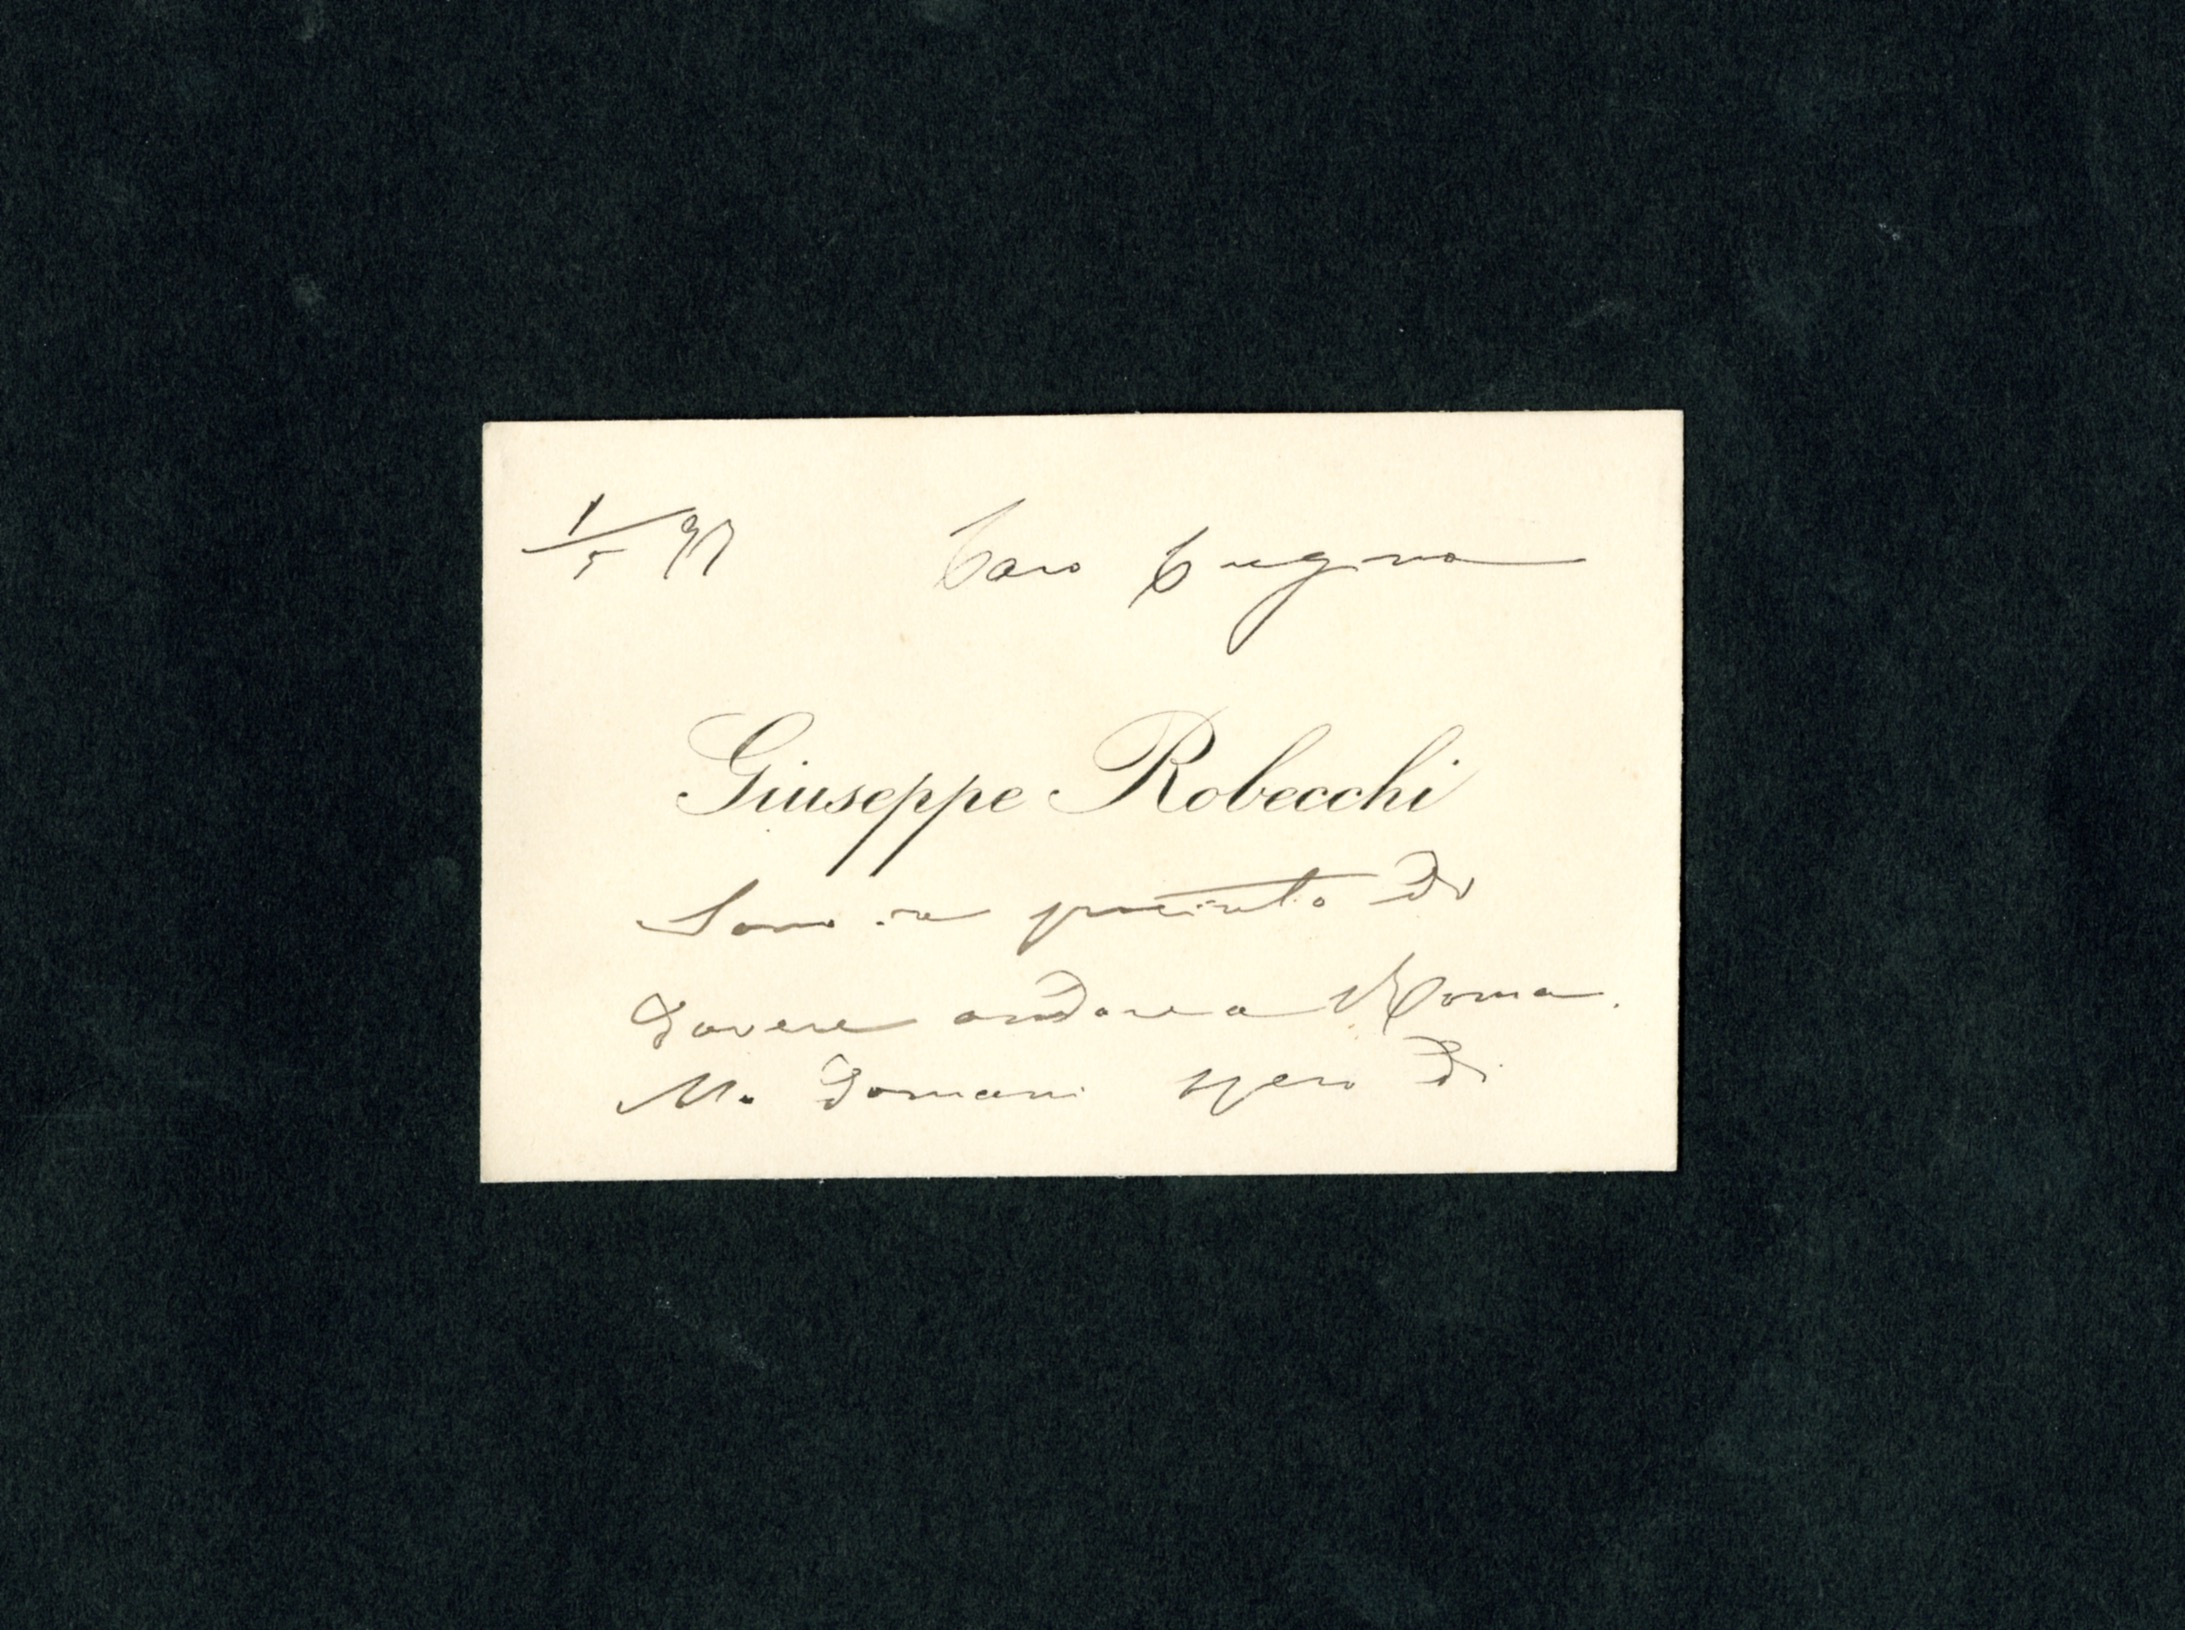 1/5 97 Caro Cugna
Giuseppe Robecchi
Sono in procinto di
dovere andare a Roma.
Ma domani spero di